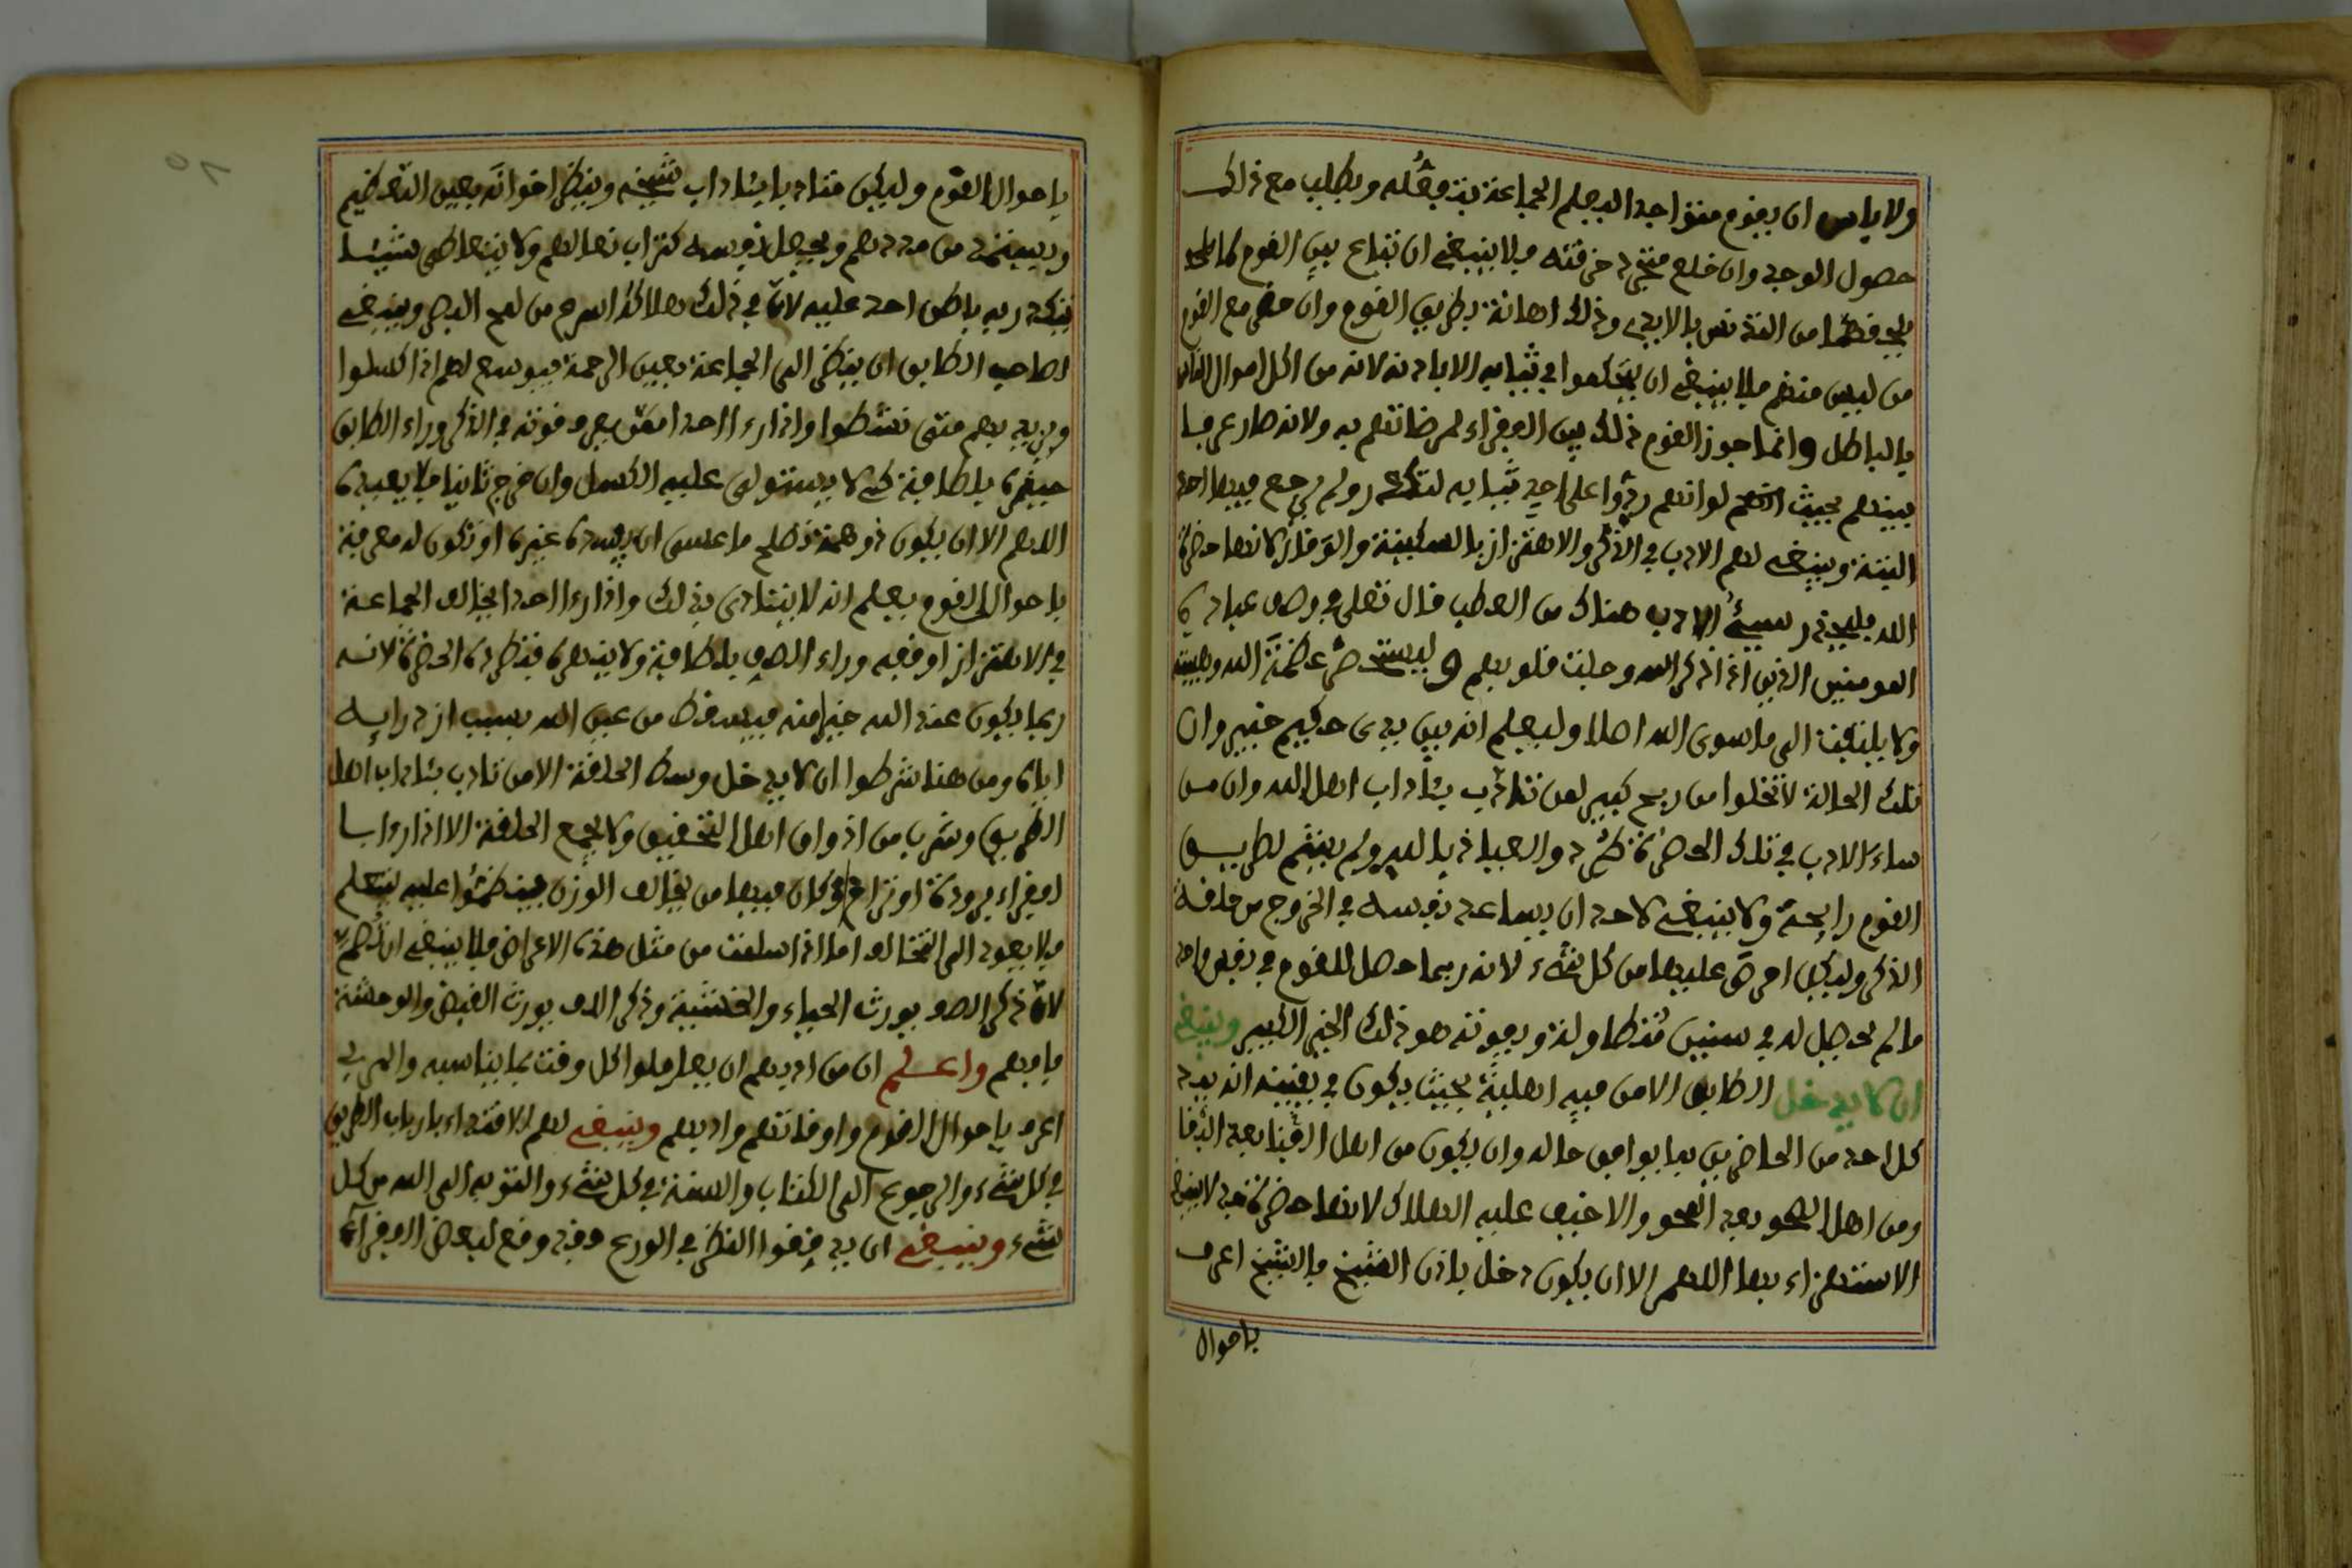 ولا باس ان يقوم متواجدا ليعلم الجماعة بتوفقله ويطلب مع ذلك
حصول الوجد وان خلع متجرد خرقته فلا ينبغي ان تباع بين القوم كما
من التقديس بالايدي وذلك اهانة بطريق القوم وان حضر مع القوم
من ليس منهم فلا ينبغي ان يحكموا في ثيابه الا باذنه لانه من اكل اموال الناس
بالباطل وانما جوز القوم ذلك بين الفقراء لمرضاتهم به ولانه صار عرفا
بينهم بحيث انهم لو انهم ردوا على احد ثيابه لتكدر ولم يرجع فيها احد
البتة وينبغي لهم الادب في الذكر والاهتزاز بالسكينة والوقار لانها حضرة
الله فليحذر سيئ الادب هناك من العطب قال تعلى في وصف عباده
المومنين الذين اذا ذكر الله وجلت قلوبهم وليستحضر عظمة الله وهيبته
ولا يلتفت الى ما سوى الله اصلا وليعلم انه بين يدى حكيم خبير وان
تلك الحالة لا تخلوا من ربح كبير لمن تادب بئاداب اهل الله وان من
ساء الادب في تلك الحضرة طرد والعياذ بالله ولم يشم لطريق
القوم رايحة ولا ينبغي لاحد ان يساعد نفسه في الخروج من حلقة
الذكر وليكن احرص عليها من كل شيء لانه ربما حصل للقوم في نفس واحد
ما لم يحصل له في سنين متطاولة ويفوته هو ذلك الخير الكبير وينبغي
ان لا يدخل الطابق الا من فيه اهلية بحيث يكون في يقينه انه يمد
كل احد من الحاضرين بما يوافق حاله وان يكون من اهل البقا بعد الفنا
ومن اهل الصحو بعد المحو والا خيف عليه الهلاك لانها حضرة لا ينبغي
الاستهزاء بها اللهم الا ان يكون دخل باذن الشيخ فالشيخ اعرف
باحوال
باحوال القوم وليكن متادبا بئاداب شيخه وينظر اخوانه بعين التعظيم
ويستمد من مددهم ويجعل نفسه كتراب نعالهم ولا يتعاطى شيئا
يتكدر به باطن احد عليه لان في ذلك هلاكه اسرع من لمح البصر وينبغي
لصاحب الطابق ان ينظر الى الجماعة بعين الرحمة فيوسع لهم اذا كسلوا
ويزيد بهم متى نشطوا واذا رءا احدا يفرغ قوته في الذكر وراء الطابق
حيره بلطافة كي لا يستولى عليه الكسل وان خرج ثانيا فلا يعيده
اللهم الا ان يكون ذو همة تصلح ما عسى ان يفسده غيره او تكون له معرفة
باحوال القوم يعلم انه لا يتاذى بذلك واذا رءا احدا يخالف الجماعة
في الاهتزاز اوقفه وراء الصف بلطافة ولا ينهره فتطرده الحضرة لانه
ربما يكون عند الله خير منه فيسقط من عين الله بسبب ازدرايه
اياه ومن هنا شرطوا ان لا يدخل وسط الحلقة الا من تادب بئاداب اهل
الطريق وشرب من اذواق اهل التحقيق ولا يجمع الحلقة الا اذا راءا با
لفقراء برودة او تراخ او كان فيها من يخالف الوزن فينكثوا عليه ليتعلم
فلا يعود الى التخالف اما اذا سلمت من مثل هذه الاعراض فلا ينبغي ان
لان ذكر الصف يورث الحياء والخشية وذكر الدف يورث القبض والوحشة
فافهم واعلم ان من ادبهم ان يعاملوا كل وقت بما يناسبه والمربى
اعرف باحوال القوم واوقاتهم وادبهم وينبغي لهم الاقتداء بارباب الطريق
في كل شيء والرجوع الى الكتاب والسنة في كل شيء والتوبه الى الله من كل
شيء وينبغي ان يدققوا النظر في الورع فقد وقع لبعض الفقراء